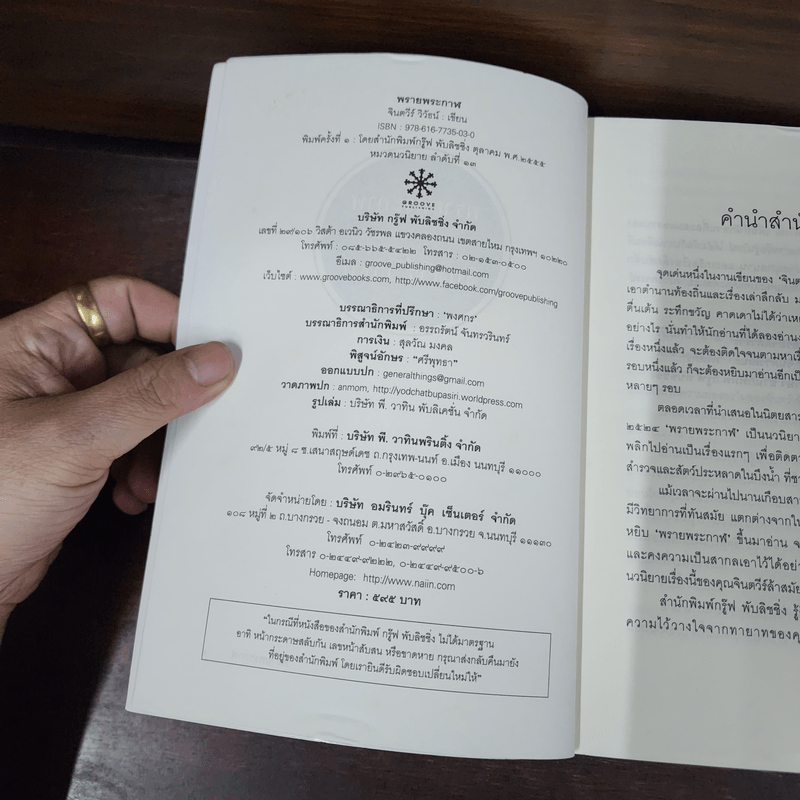 พรายพระกาฬ
จินตวีร์ วิวัธน์ : เขียน
ISBN : 978-616-7735-03-0
พิมพ์ครั้งที่ ๑ : โดยสำนักพิมพ์กรู๊ฟ พับลิชชิ่ง ตุลาคม พ.ศ.๒๕๕๕
หมวดนวนิยาย ลำดับที่ ๑๓
GROOVE
PUBLISHING
บริษัท กรู๊ฟ พับลิชชิ่ง จำกัด
เลขที่ ๒๙/๑๐๖ วิสต้า อเวนิว วัชรพล แขวงคลองถนน เขตสายไหม กรุงเทพฯ ๑๐๒๒๐
โทรศัพท์ : ๐๘๕-๖๖๕-๕๔๒๒ โทรสาร : ๐๒-๑๕๓-๐๕๐๐
อีเมล : groove_publishing@hotmail.com
เว็บไซต์ : www.groovebooks.com, http://www.facebook.com/groovepublishing
บรรณาธิการที่ปรึกษา : 'พงศกร'
บรรณาธิการสำนักพิมพ์ : อรรถรัตน์ จันทรวรินทร์
การเงิน : สุลวัณ มงคล
พิสูจน์อักษร : "ศรีพุทธา"
ออกแบบปก : generalthings@gmail.com
วาดภาพปก : anmom, http://yodchatbupasiri.wordpress.com
รูปเล่ม : บริษัท พี. วาทิน พับลิเคชั่น จำกัด
พิมพ์ที่ : บริษัท พี. วาทินพรินติ้ง จำกัด
๙๒/๕ หมู่ ๘ ซ.เสนาสฤษด์เดช ถ.กรุงเทพ-นนท์ อ.เมือง นนทบุรี ๑๑๐๐๐
โทรศัพท์ ๐-๒๙๖๕-๐๑๐๐
จัดจำหน่ายโดย : บริษัท อมรินทร์ บุ๊ค เซ็นเตอร์ จำกัด
๑๐๘ หมู่ที่ ๒ ถ.บางกรวย - จงถนอม ต.มหาสวัสดิ์ อ.บางกรวย จ.นนทบุรี ๑๑๑๓๐
โทรศัพท์ ๐-๒๔๒๓-๙๙๙๙
โทรสาร ๐-๒๔๔๙-๙๒๒๒, ๐-๒๔๔๙-๙๕๐๐-๖
Homepage: http://www.naiin.com
ราคา : ๕๙๕ บาท
"ในกรณีที่หนังสือของสำนักพิมพ์ กรู๊ฟ พับลิชชิ่ง ไม่ได้มาตรฐาน
อาทิ หน้ากระดาษสลับกัน เลขหน้าสับสน หรือขาดหาย กรุณาส่งกลับคืนมายัง
ที่อยู่ของสำนักพิมพ์ โดยเรายินดีรับผิดชอบเปลี่ยนใหม่ให้"
คำนำสำนั
จุดเด่นหนึ่งในงานเขียนของ 'จินต
เอาตำนานท้องถิ่นและเรื่องเล่าลึกลับ ม
ตื่นเต้น ระทึกขวัญ คาดเดาไม่ได้ว่าเหต
อย่างไร นั่นทำให้นักอ่านที่ได้ลองอ่านง
เรื่องหนึ่งแล้ว จะต้องติดใจจนตามหาเรื่
รอบหนึ่งแล้ว ก็จะต้องหยิบมาอ่านอีกเป็
หลายๆ รอบ
ตลอดเวลาที่นำเสนอในนิตยสาร
๒๕๒๔ 'พรายพระกาฬ' เป็นนวนิยา
พลิกไปอ่านเป็นเรื่องแรกๆ เพื่อติดตา
สำรวจและสัตว์ประหลาดในบึงน้ำ ที่ซา
แม้เวลาจะผ่านไปนานเกือบสา
มีวิทยาการที่ทันสมัย แตกต่างจากใน
หยิบ 'พรายพระกาฬ' ขึ้นมาอ่าน จ
และคงความเป็นสากลเอาไว้ได้อย่า
นวนิยายเรื่องนี้ของคุณจินตวีร์ล้ำสมัย
สำนักพิมพ์กรู๊ฟ พับลิชชิ่ง รู้
ความไว้วางใจจากทายาทของคุ